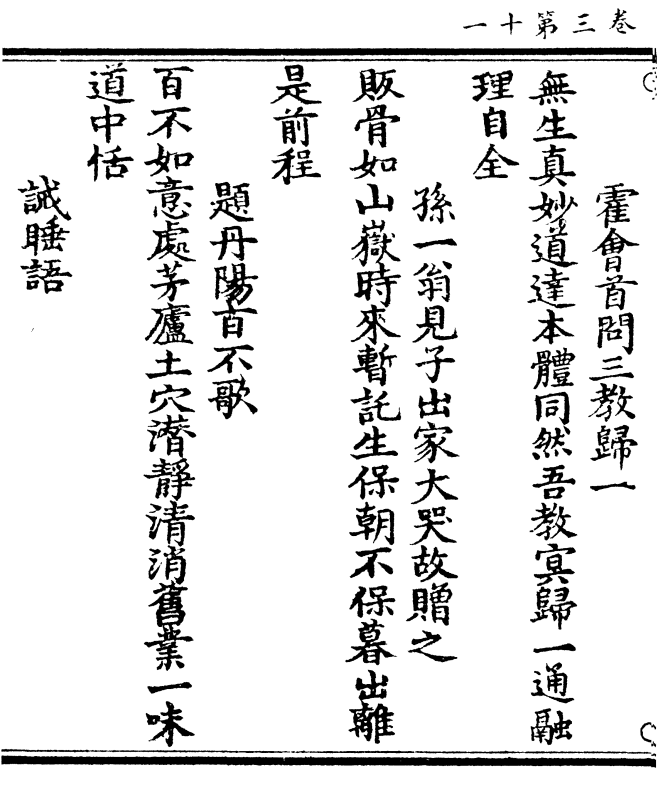 卷三第十一
霍會首問三教歸一
無生真妙道達本體同然吾教冥歸一通融
理自全
孫一翁見子出家大哭故贈之
販骨如山嶽時來暫託生保朝不保暮出離
是前程
題丹陽百不歌
百不如意處茅廬土穴潛靜清消舊業一味
道中恬
誡睡語